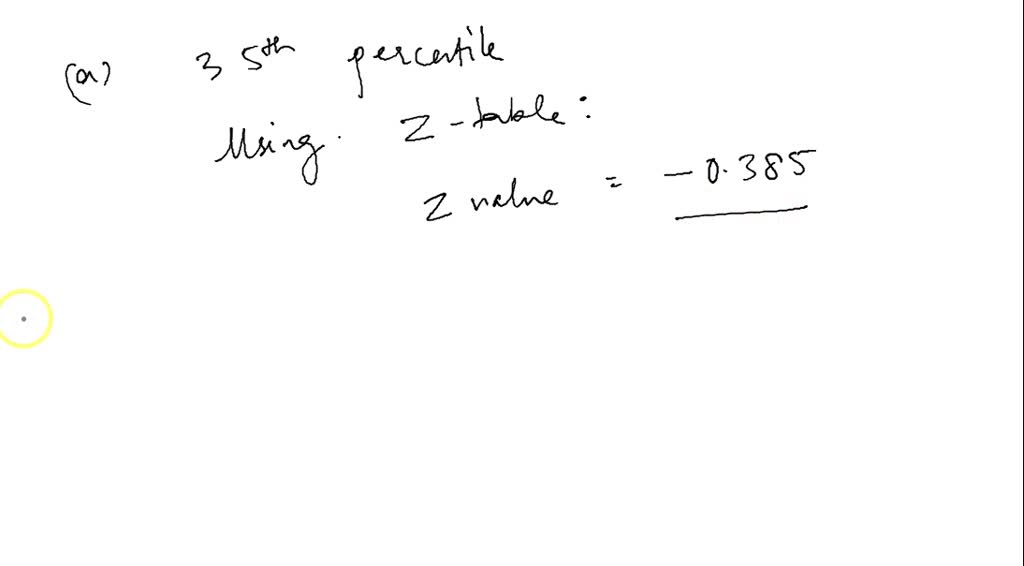 (a) 35th percentile
Using. Z-table:
Z value = -0.385